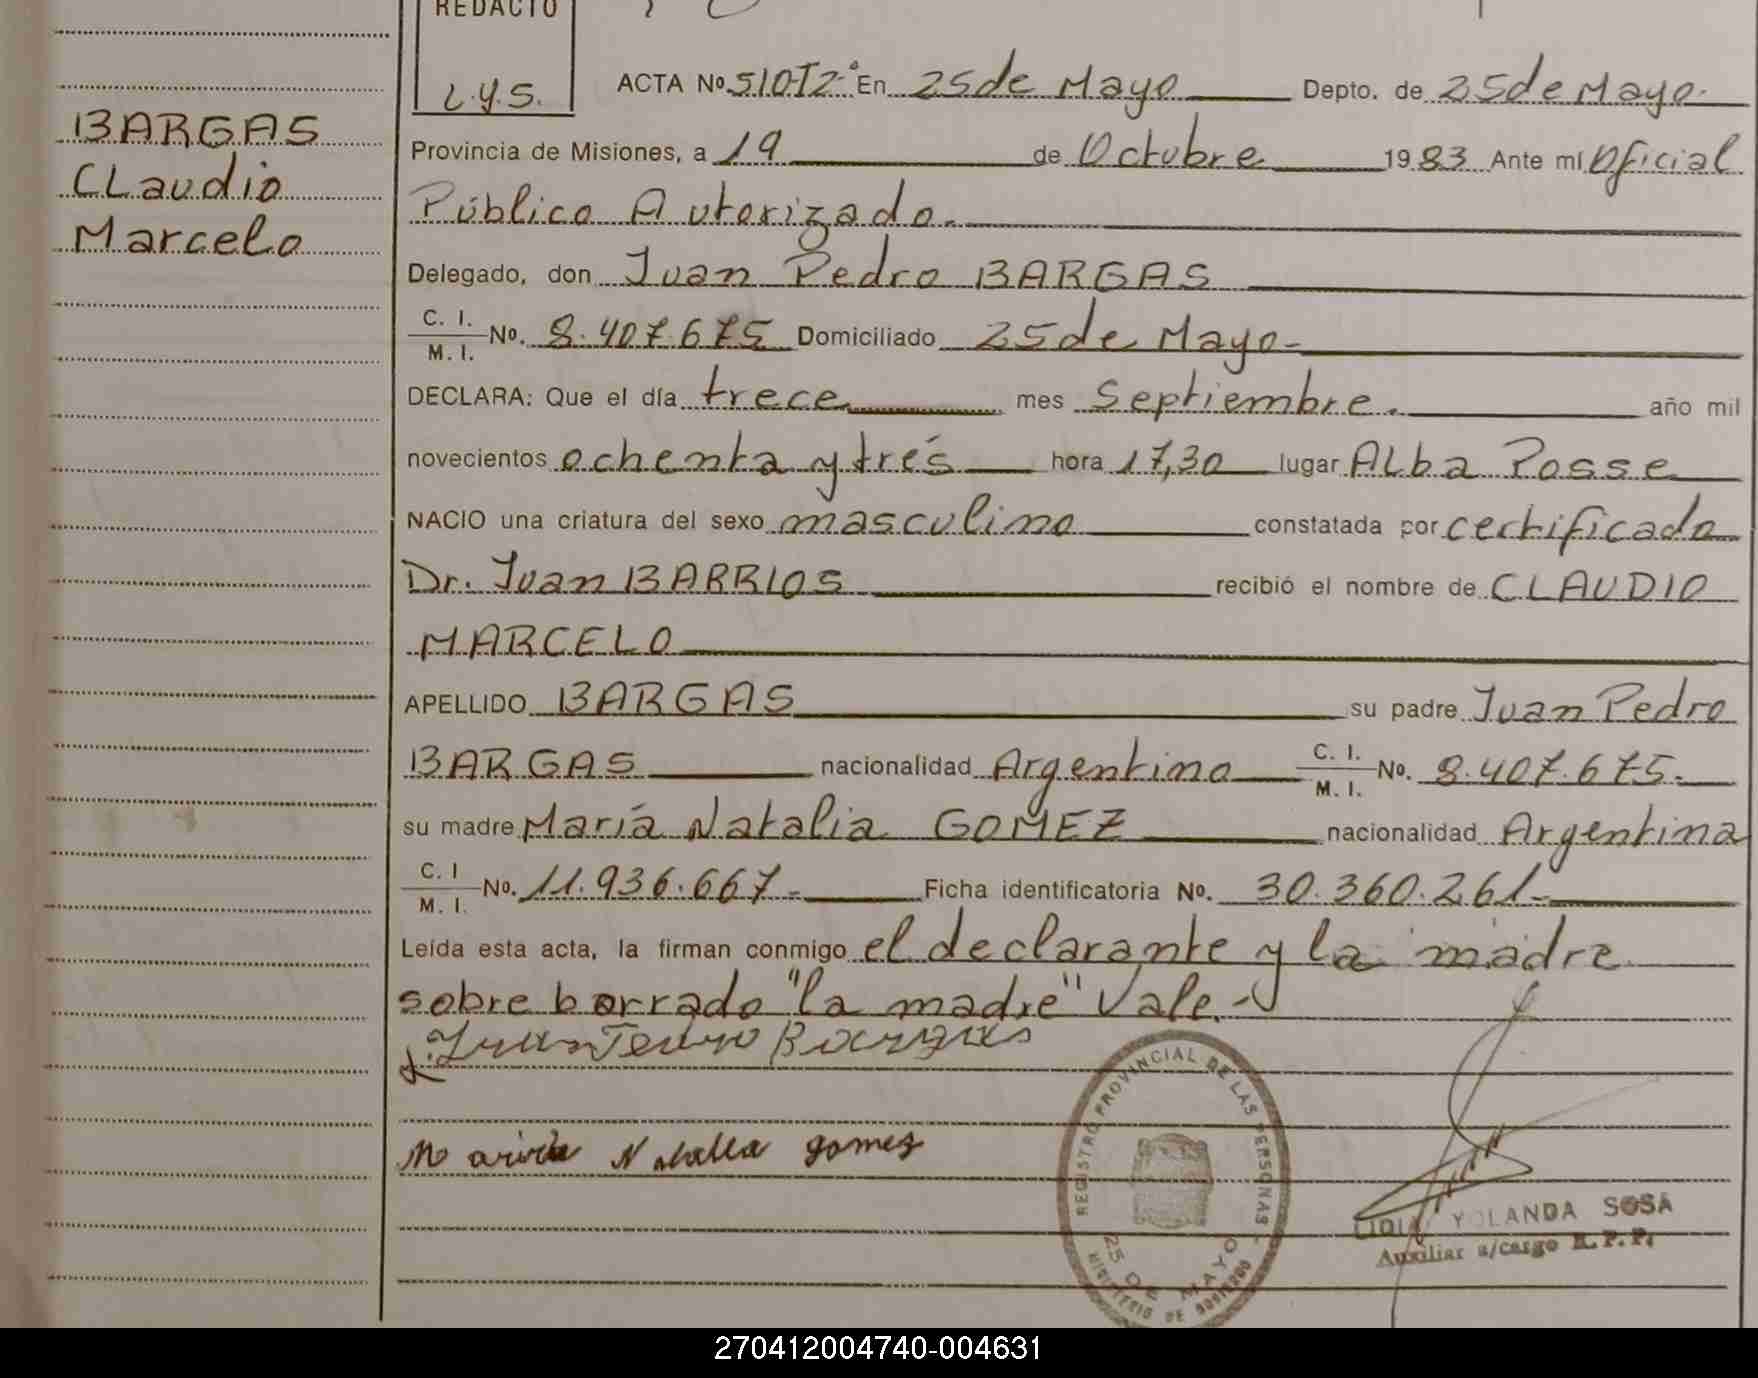 REDACTO
L.Y.S.
BARGAS
CLaudio
Marcelo
ACTA No 510T2° En 25 de Mayo Depto. de 25 de Mayo.
Provincia de Misiones, a 19 de Octubre 1983 Ante mí Oficial
Público Autorizado.
Delegado, don Juan Pedro BARGAS
C. I.
M. I. No. 8.407.675 Domiciliado 25 de Mayo-
DECLARA: Que el día trece mes Septiembre. año mil
novecientos ochenta y trés hora 17,30 lugar Alba Posse
NACIO una criatura del sexo masculino constatada por certificado
Dr. Juan BARRIOS recibió el nombre de CLAUDIO
MARCELO
APELLIDO BARGAS su padre Juan Pedro
BARGAS nacionalidad Argentino C. I. M. I. No. 8.407.675.-
su madre María Natalia GOMEZ nacionalidad Argentina
C. I M. I. No. 11.936.667.- Ficha identificatoria No. 30.360.261-
Leída esta acta, la firman conmigo el declarante y la madre
sobre borrado "la madre" Vale.-
Juan Pedro Bargas
Maria Natalia gomez
REGISTRO PROVINCIAL DE LAS PERSONAS
25 DE MAYO
MINISTERIO DE GOBIERNO
LIDIA YOLANDA SOSA
Auxiliar a/cargo R. P. P.
270412004740-004631